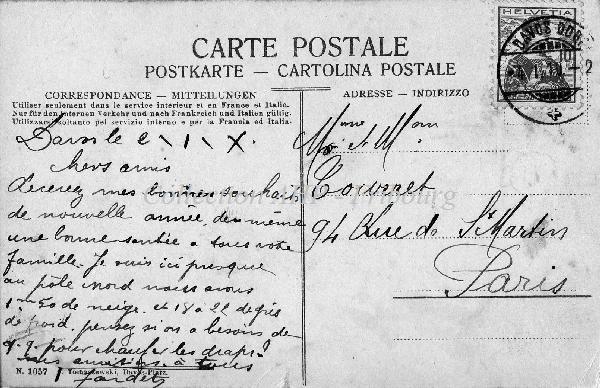 HELVETIA
DAVOS DORF
CARTE POSTALE
POSTKARTE — CARTOLINA POSTALE
CORRESPONDANCE — MITTEILUNGEN
Utiliser seulement dans le service intérieur et en France et Italie.
Nur für den internen Verkehr und nach Frankreich und Italien gültig.
Utilizzare soltanto pel servizio interno e per la Francia ed Italia.
ADRESSE — INDIRIZZO
le 2 \ 1 \ X.
chers amis
recevez mes bonnes souhaits
de nouvelle année, de même
une bonne santée a tous votre
famille. Je suis ici presque
au pôte nord nous avons
1m 50 de neige. et 18 à 22 degrés
de froid. pensez si on a besoins de
q. q. pour chaufer les draps!
mes amitiés à tous
Mme et Mon
Tourret
94 Rue de St Martin
Paris
Collection - Fribourg
N. 1057 Davos-Platz.